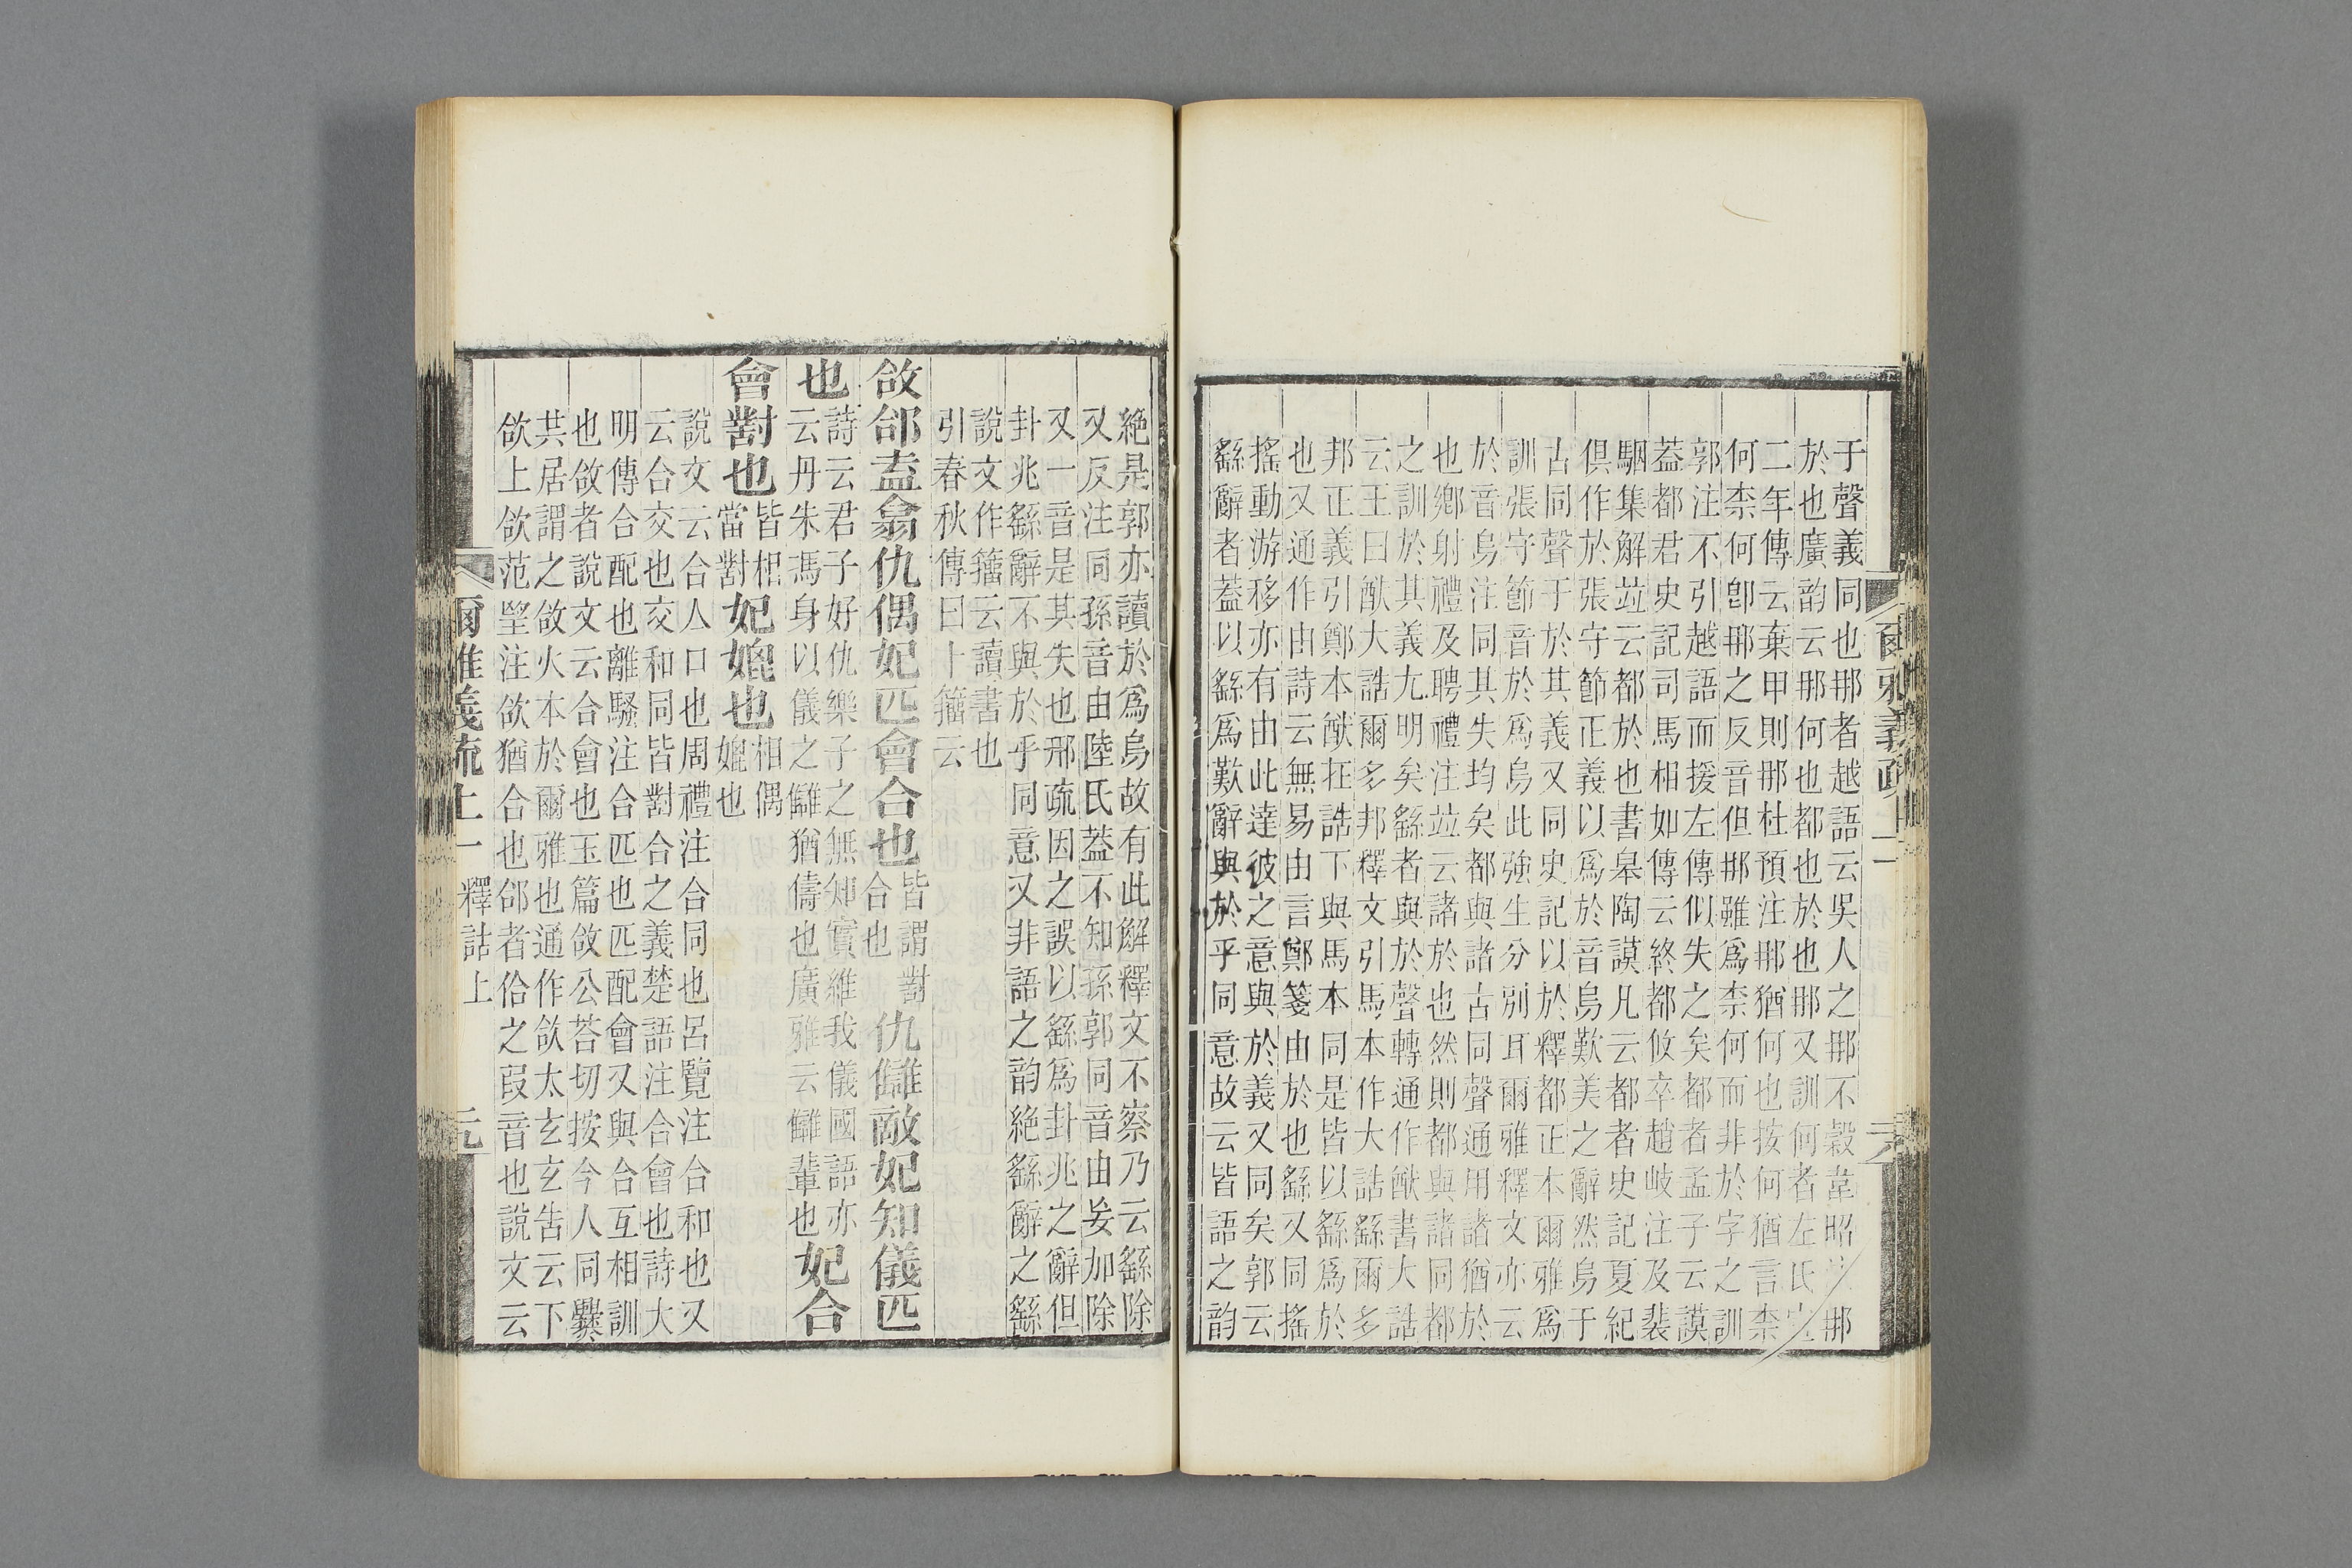 于聲義同也那者越語云吳人之那不穀韋昭注那
於也廣韵云那何也都也於也那又訓何者左氏宣
二年傳云棄甲則那杜預注那猶何也按何猶言柰
何柰何卽那之反音但那雖爲柰何而非於字之訓
郭注不引越語而援左傳似失之矣都者孟子云謨
蓋都君史記司馬相如傳云終都攸卒趙岐注及裴
駰集解竝云都於也書皋陶謨凡云都者史記夏紀
俱作於張守節正義以爲於音烏歎美之辭然烏于
古同聲于於其義又同史記以於釋都正本爾雅爲
訓張守節音於爲烏此強生分別耳爾雅釋文亦云
於音烏注同其失均矣都與諸古同聲通用諸猶於
也鄉射禮及聘禮注竝云諸於也然則都與諸同都
之訓於其義尤明矣繇者與於聲轉通作猷書大誥
云王曰猷大誥爾多邦釋文引馬本作大誥繇爾多
邦正義引鄭本猷在誥下與馬本同是皆以繇爲於
也又通作由詩云無易由言鄭箋由於也繇又同搖
搖動游移亦有由此達彼之意與於義又同矣郭云
繇辭者蓋以繇爲歎辭與於乎同意故云皆語之韵
絶是郭亦讀於爲烏故有此解釋文不察乃云繇除
又反注同孫音由陸氏蓋不知孫郭同音由妄加除
又一音是其失也邢疏因之誤以繇爲卦兆之辭但
卦兆繇辭不與於乎同意又非語之韵絶繇辭之繇
說文作籀云讀書也
引春秋傳曰卜籀云
敆郃盍翕仇偶妃匹會合也皆謂對合也仇讎敵妃知儀匹
也詩云君子好仇樂子之無知實維我儀國語亦
云丹朱馮身以儀之讎猶儔也廣雅云讎輩也妃合
會對也皆相當對妃媲也相偶媲也
說文云合亼口也周禮注合同也呂覽注合和也又
云合交也交和同皆對合之義楚語注合會也詩大
明傳合配也離騷注合匹也匹配會又與合互相訓
也敆者說文云合會也玉篇敆公荅切按今人同爨
共居謂之敆火本於爾雅也通作欱太玄玄告云下
欱上欱范望注欱猶合也郃者佮之叚音也說文云
爾雅義疏上一 釋詁上